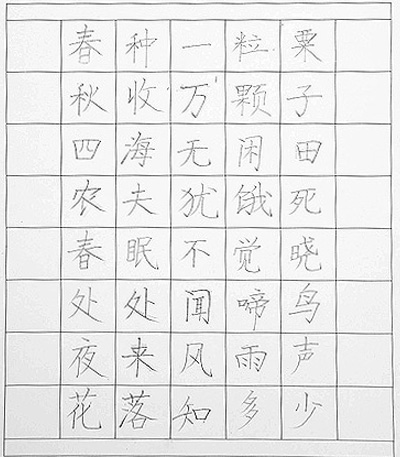 春种一粒粟
秋收万颗子
四海无闲田
农夫犹饿死
春眠不觉晓
处处闻啼鸟
夜来风雨声
花落知多少